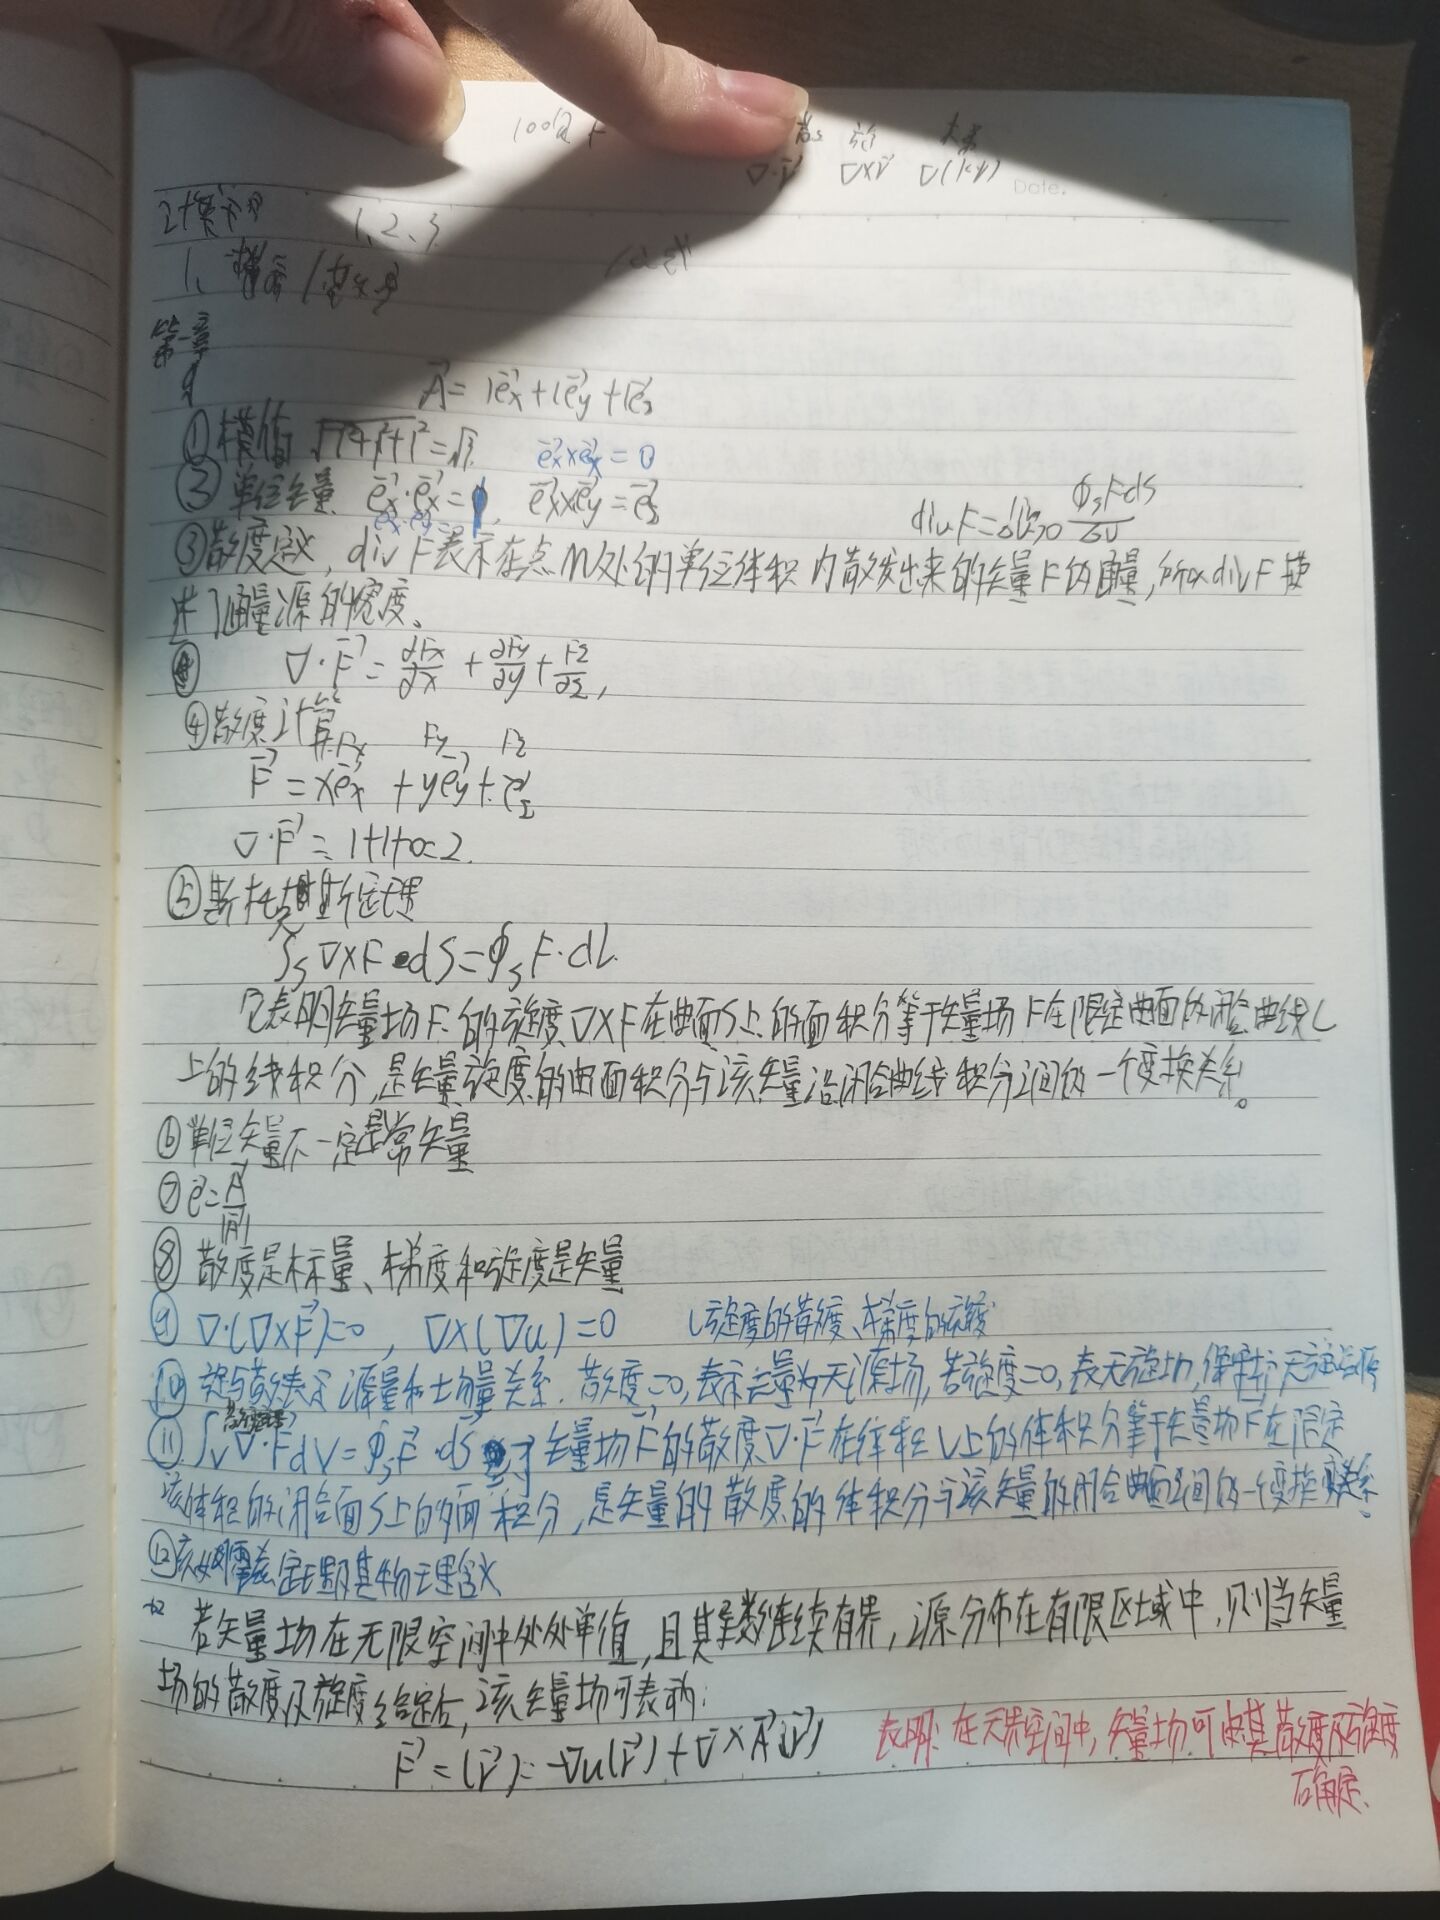 散 旋
∇·r⃗ ∇×r⃗ ∇(k·r)
Date.
1、2、3.
第一章
A⃗ = 1e⃗x+1e⃗y+1e⃗z
①模值 √1²+1²+1² = √3 e⃗x×e⃗x = 0
②单位矢量 e⃗x·e⃗x = 1, e⃗x×e⃗y = e⃗z
ex·ey=0
div F = lim△v→0 ∮sFdS/△v
③散度定义, div F 表示在点M处的单位体积内散发出来的矢量F的通量,所以div F 描
述了通量源的密度、
∇·F⃗ = ∂Fx/∂x + ∂Fy/∂y + Fz/∂z,
④散度计算
Fx Fy Fz
F⃗ = xe⃗x + ye⃗y + e⃗z
∇·F⃗ = 1+1+0=2.
⑤斯托克斯定理
∫s ∇×F·dS=∮s F·dl.
它表明矢量场F的旋度∇×F在曲面S上的面积分等于矢量场F在限定曲面的闭合曲线C
上的线积分,是矢量旋度的曲面积分与该矢量沿闭合曲线积分之间的一个变换关系。
⑥单位矢量不一定是常矢量
⑦e⃗=A⃗/|A⃗|
⑧散度是标量、梯度和旋度是矢量
⑨∇·(∇×F⃗)=0, ∇×(∇u)=0 (旋度的散度、梯度的旋度
⑩旋与散表示源量和场量关系.散度=0,表示矢量为无源场,若旋度=0,表无旋场,保守场
散度定理
⑪∫v∇·F⃗dV=∮sF⃗·dS 矢量场F⃗的散度∇·F⃗在体积V上的体积分等于矢量场F⃗在限定
该体积的闭合面S上的面积分,是矢量的散度的体积分与该矢量的闭合曲面之间的一个变换关系.
⑫亥姆霍兹定理及其物理含义
若矢量场在无限空间中处处单值,且其导数连续有界,源分布在有限区域中,则当矢量
场的散度及旋度给定后,该矢量场可表示为:
F⃗=(r⃗)=-∇u(r⃗)+∇×A⃗(r⃗) 表明:在无界空间中,矢量场可由其散度及旋度
确定、